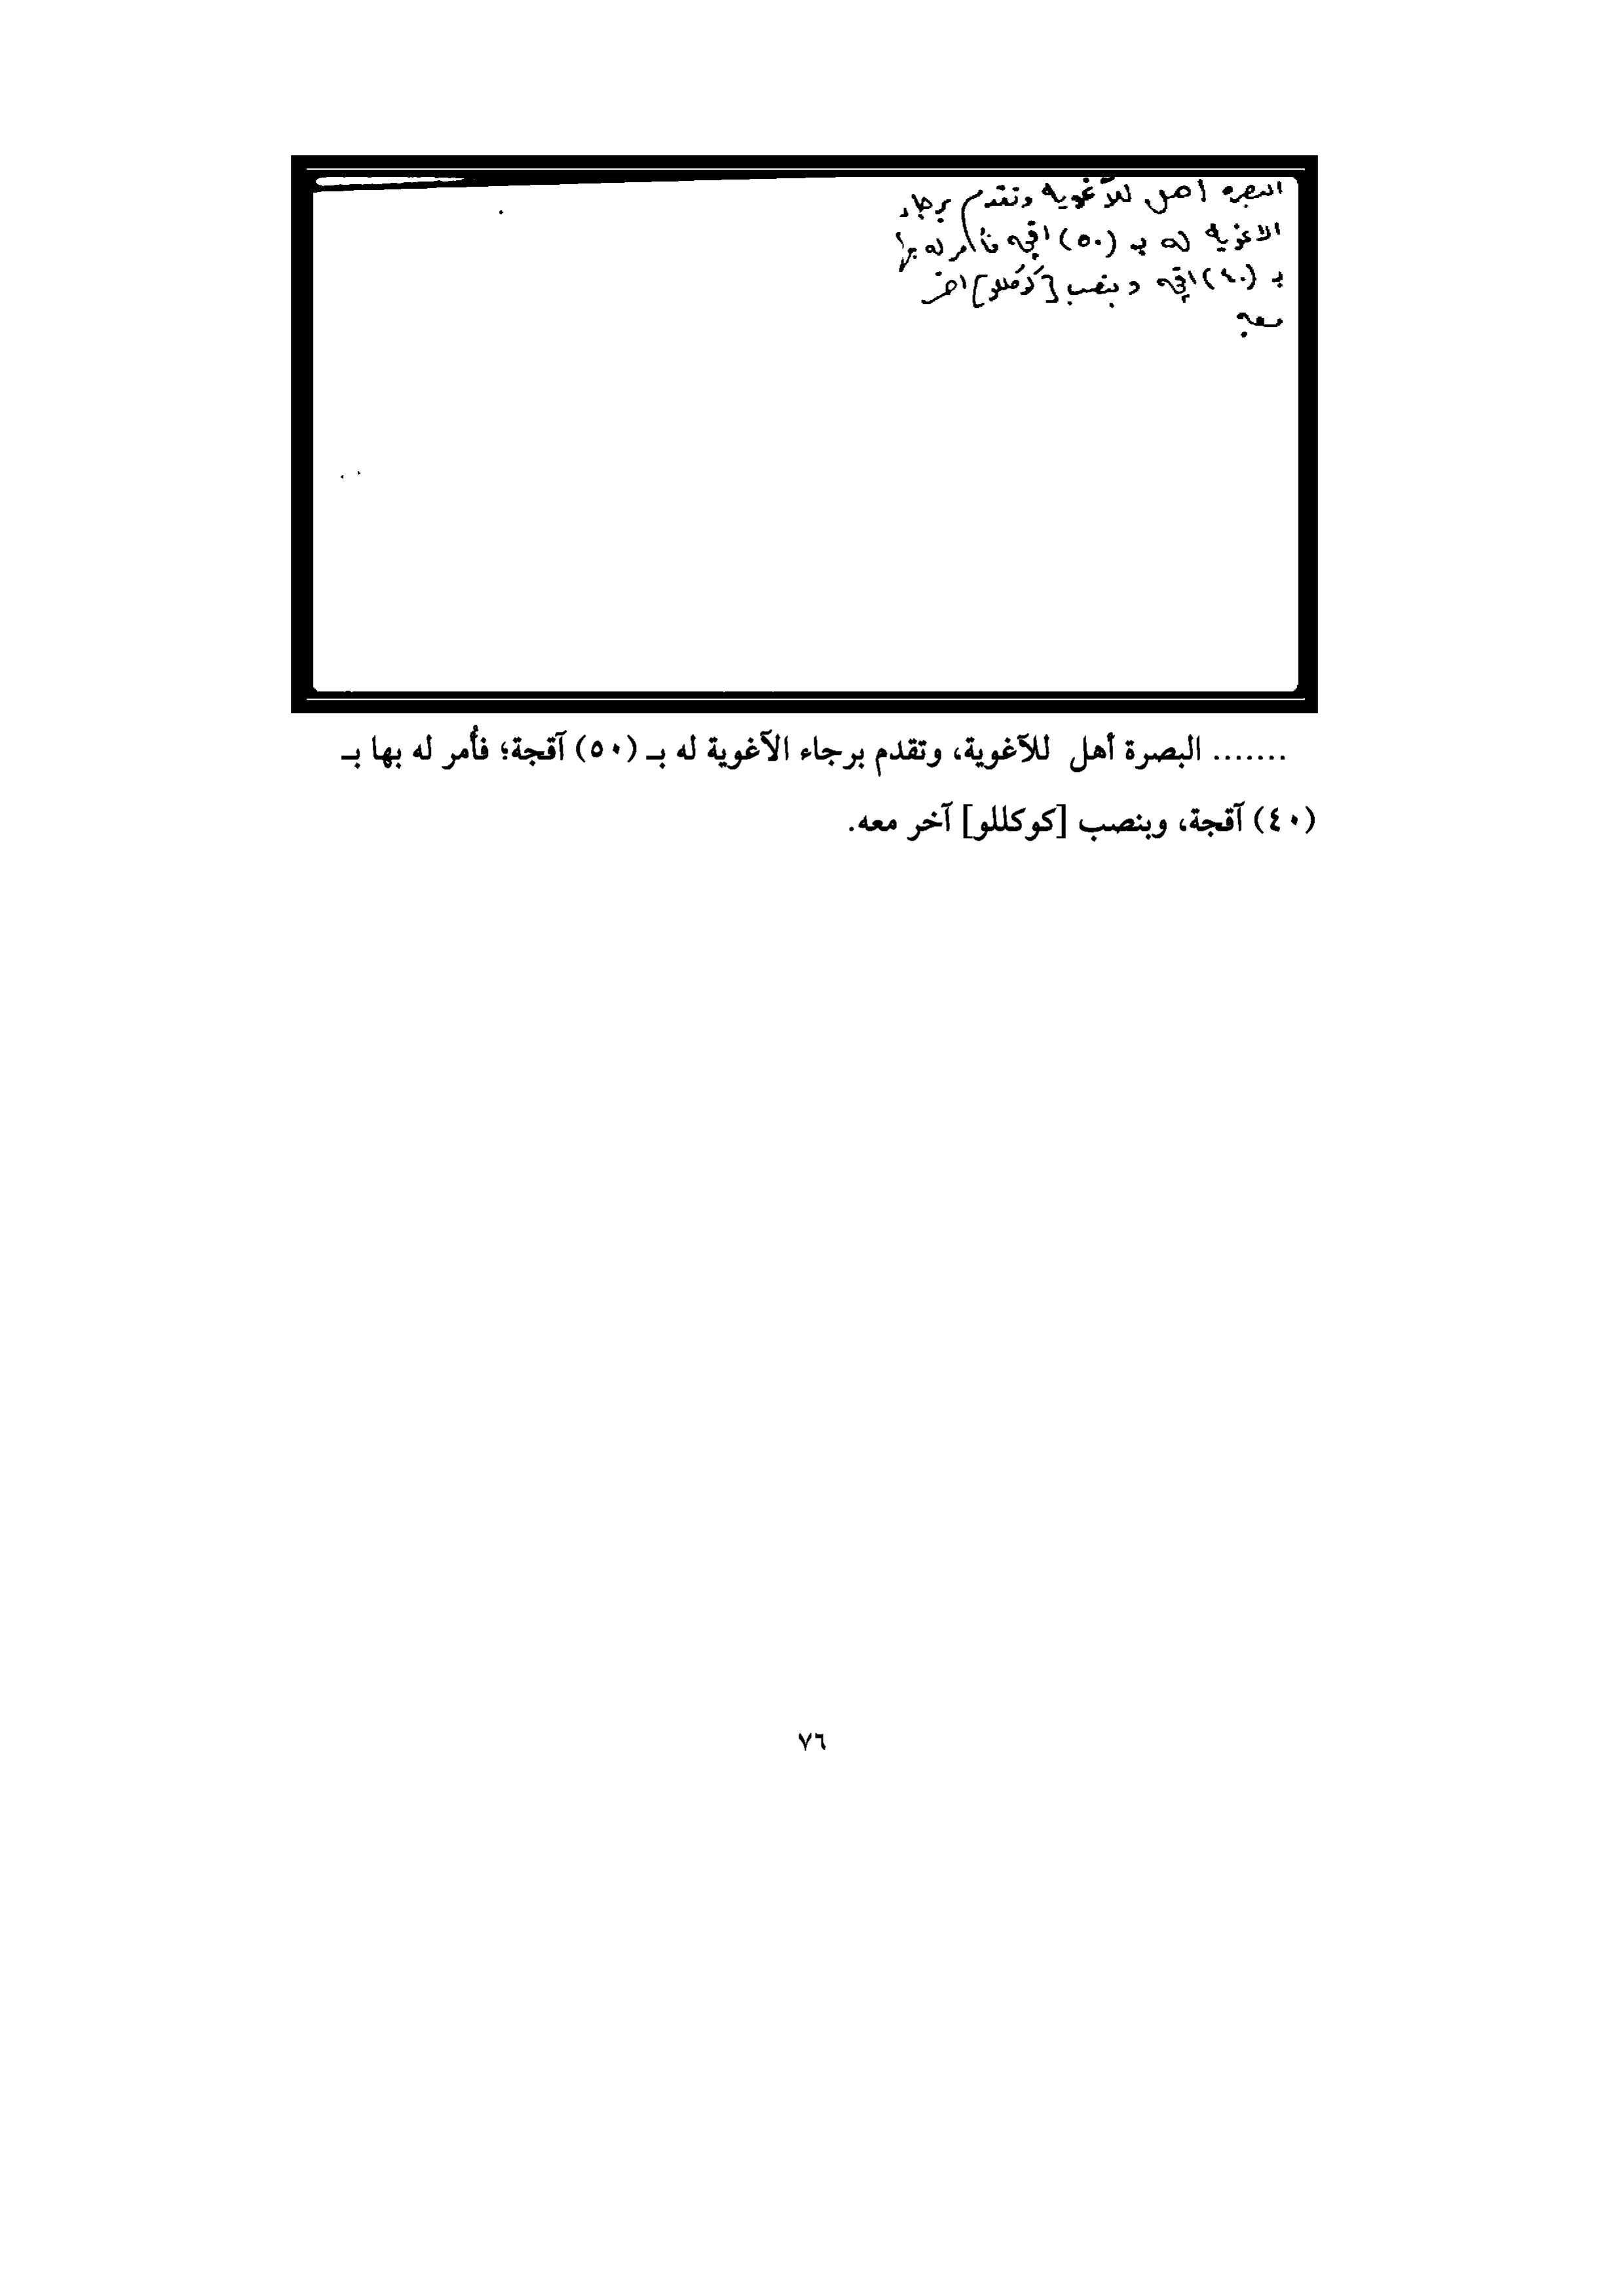 البصره اهل للآغويه وتقدم برجاء
الاغويه له بـ (٥٠) اقچه فأمر له بها
بـ (٤٠) اقچه وبنصب [كوكللو] اخر
معه
....... البصرة أهل للآغوية، وتقدم برجاء الآغوية له بـ (٥٠) آقجة؛ فأمر له بها بـ
(٤٠) آقجة، وبنصب [كوكللو] آخر معه.
٧٦